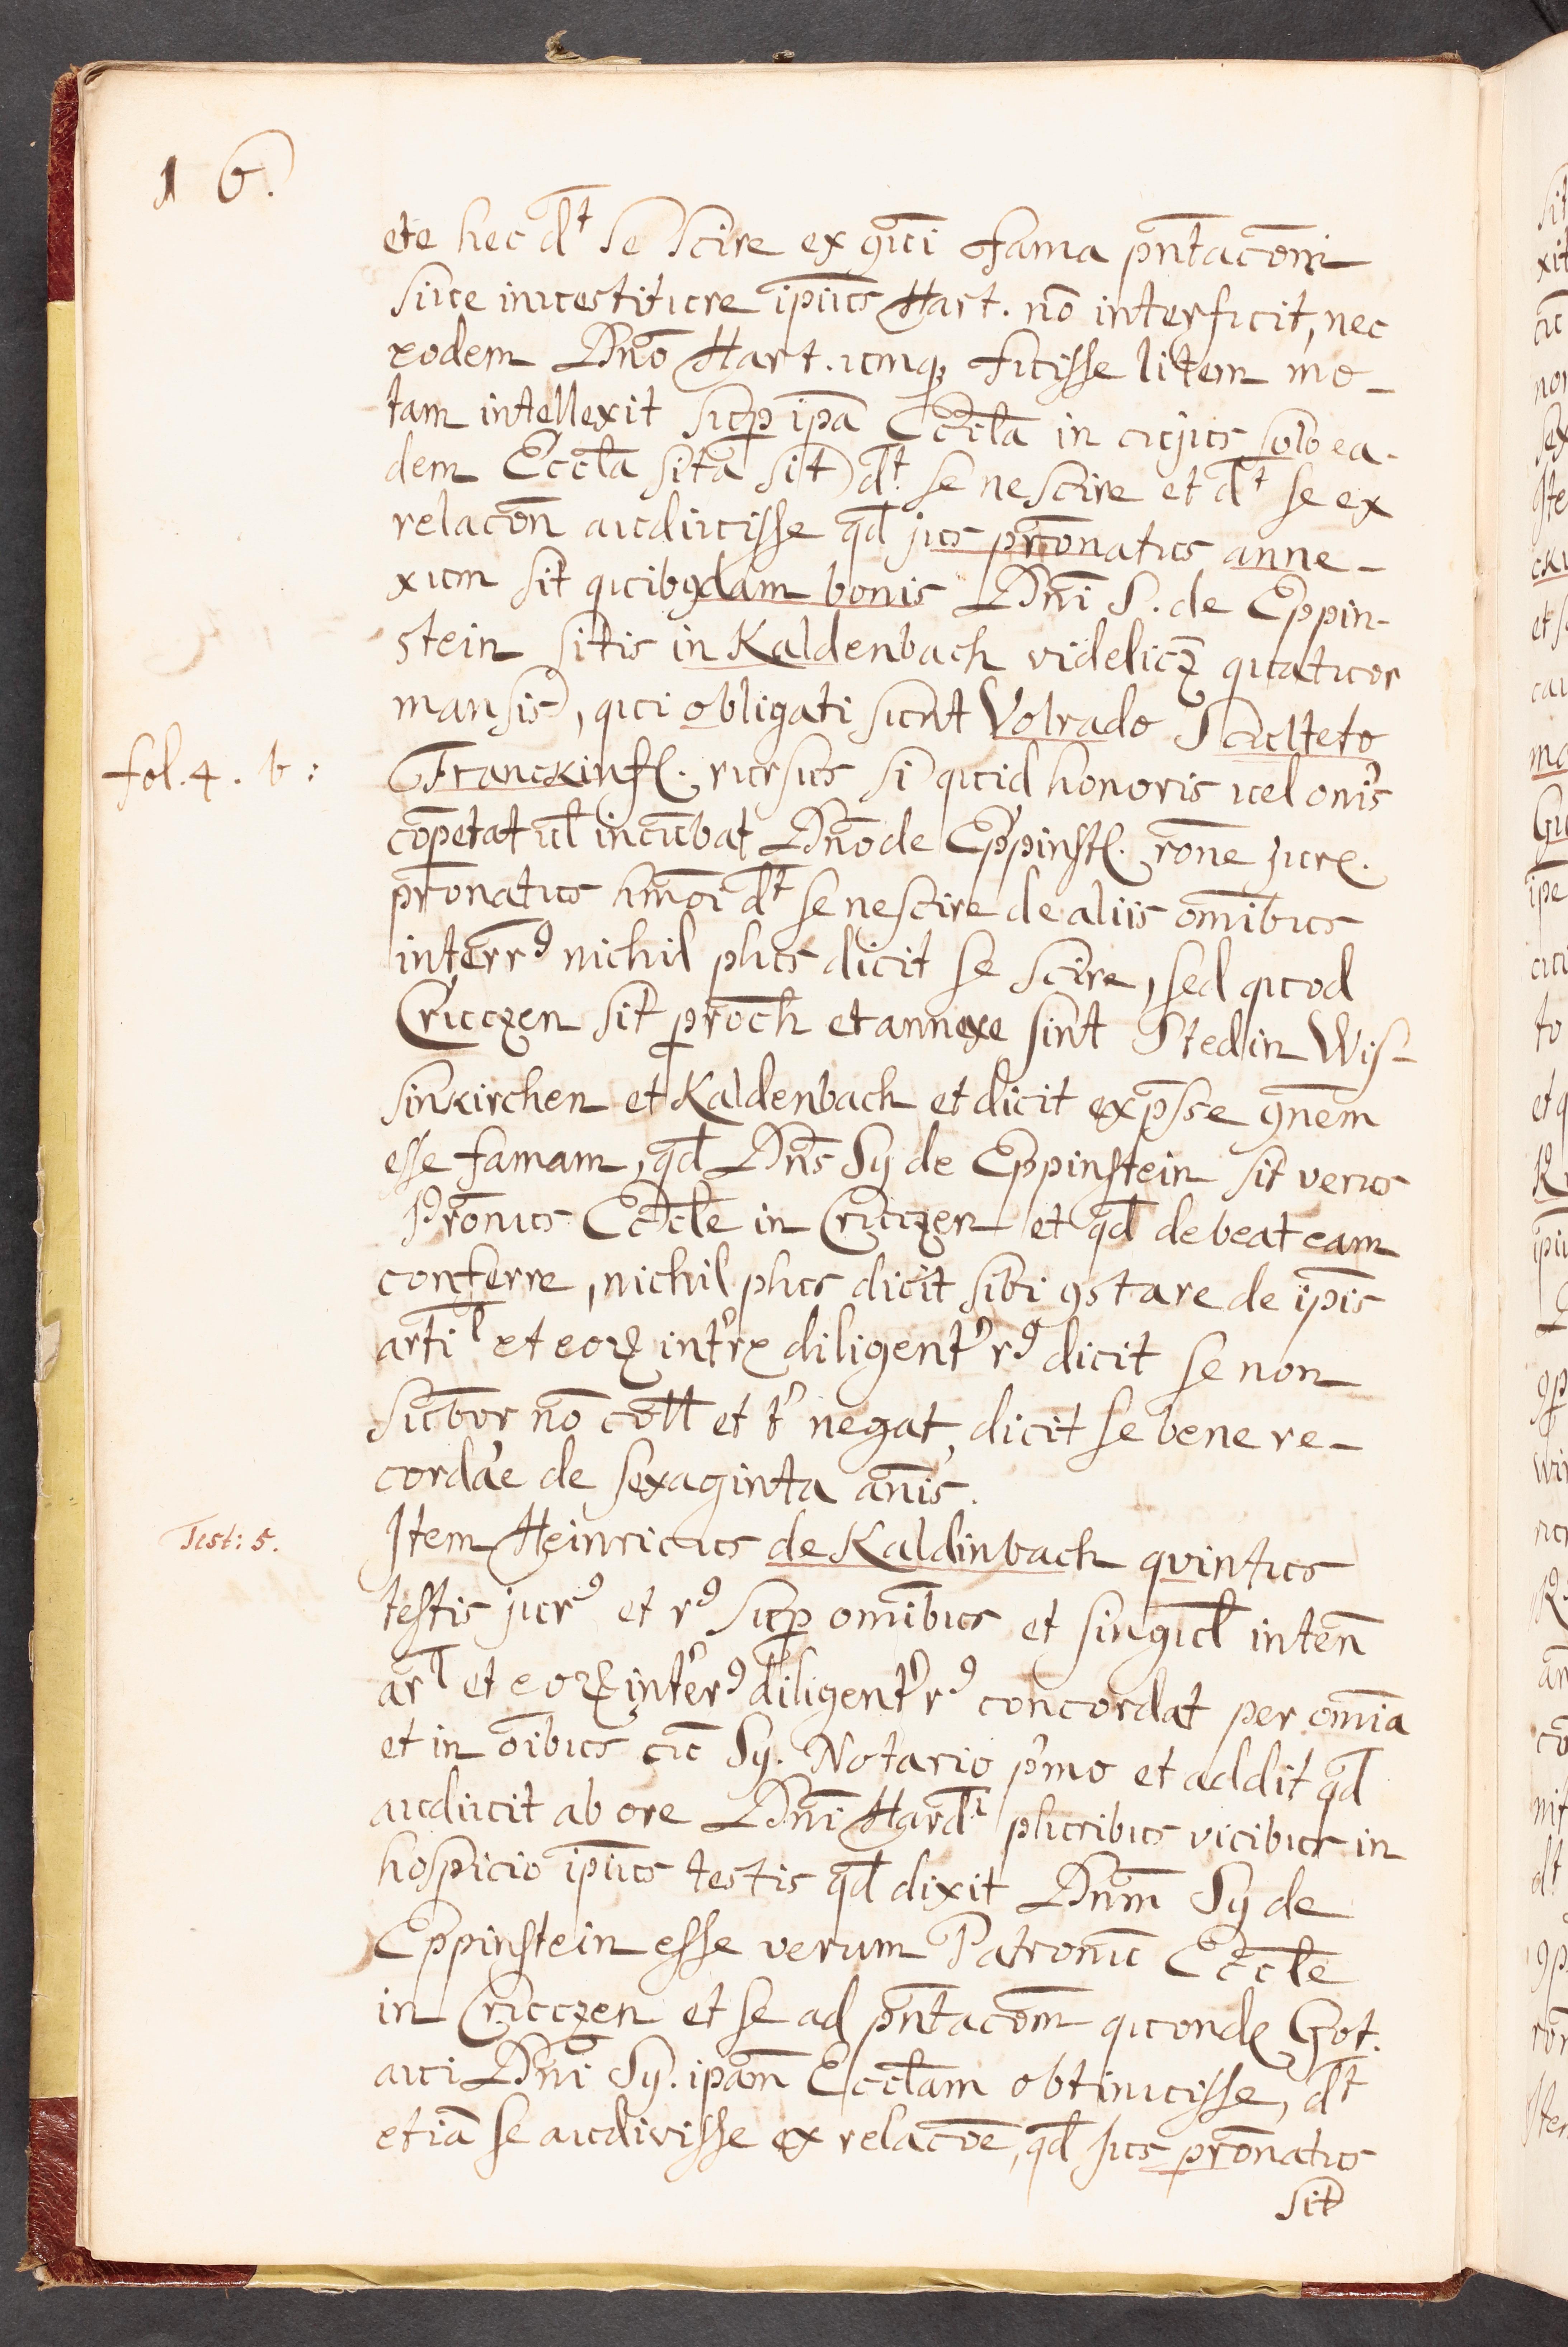 16.
ete hec dt se scire ex 9ui fama pn̄tacōni
sive investiture ipius Hart. nō interfuit, nec
eodem Dnō Hart. umqȝ fuisse litem mo-
tam intellexit sup ipā Ecclā in cujus solo ea-
dem Ecclā sita sit dt. se nescire et dt se ex
relacōn audivisse qd jus prōnatus anne-
xum sit quibusdam bonis Dnī S. de Eppin-
stein sitis in Kaldenbach videlicȝ quatuor
mansis, qui obligati sunt Volrado Sculteto
fol. 4. b:
Franckinf. rursus si quid honoris vel oneris
cōpetat vl incūbat Dnō de Eppinst. rōne jure.
prōnatus hmōi dt se nescire de aliis omībus
interr9 nichil plus dicit se scire, sed quod
Cruczen sit proch et annexe sint Stedin Wis-
sinkirchen et Kaldenbach et dicit exp̄sse 9nem
esse famam, qd Dns Sy de Eppinstein sit verus
Prōnus Eccle in Cruczen et qd debeat eam
conferre, nichil plus dicit sibi 9stare de ipis
arti et eoꝝ intr diligentr r9 dicit se non
subor nō coll et tr negat, dicit se bene re-
cordae de sexaginta anis.
Test: 5.
Item Heinricus de Kaldinbach quintus
testis jur9 et r9 sup omībus et singul inten
arl et eoꝝ inter9 diligentr r9 concordat per omīa
et in oībus cū Sy. Notario pmo et addit qd
audivit ab ore Dnī Hardi pluribus vicibus in
hospicio ipius testis qd dixit Dnm Sy de
Eppinstein esse verum Patronū Eccle
in Cruczen et se ad pn̄tacōm quond Got.
avi Dnī Sy. ipam Ecclam obtinuisse, dt
etiā se audivisse ex relacōe, qd jus prōnatus
sit